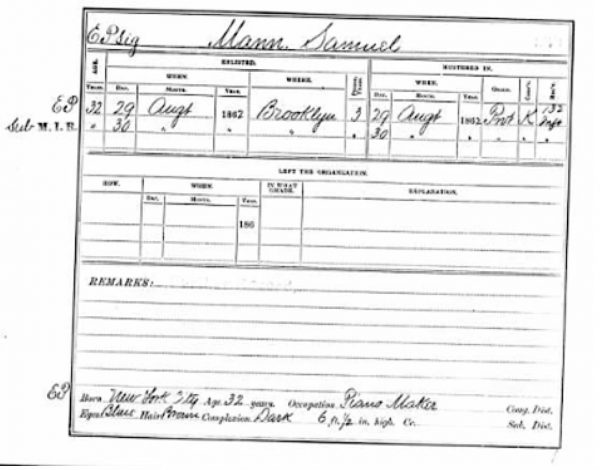 EP sig Mann. Samuel
AGE. ENLISTED. MUSTERED IN.
WHEN. WHERE. Period, Years. WHEN. GRADE. Comp'y. Reg't.
YEARS. DAY. MONTH. YEAR. DAY. MONTH. YEAR.
EP 32 29 Augt 1862 Brooklyn 3 29 Augt 1862 Pvt K 132 Inf
Sub M. I. R. " 30 " " " " 30 " " " " "
LEFT THE ORGANIZATION.
HOW. WHEN. IN WHAT GRADE. EXPLANATION.
DAY. MONTH. YEAR.
186
REMARKS:
EP Born New York City Age 32 years. Occupation Piano Maker Cong. Dist.
Eyes Blue Hair Brown Complexion Dark 6 ft. 1/2 in. high. Cr. Sub. Dist.